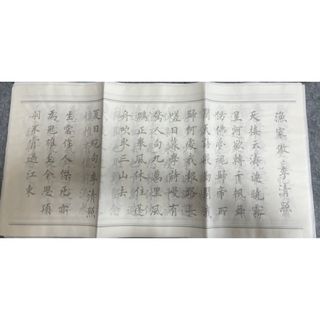 漁家傲 李清照
天接云濤連曉霧
星河欲轉千帆舞
仿佛夢魂歸帝所
聞天語殷勤問我
歸何處我報路長
嗟日暮學詩謾有
驚人句九萬里風
鵬正舉風休住蓬
舟吹取三山去
夏日绝句 李清照
生當作人傑死亦
為鬼雄至今思項
羽不肯過江東